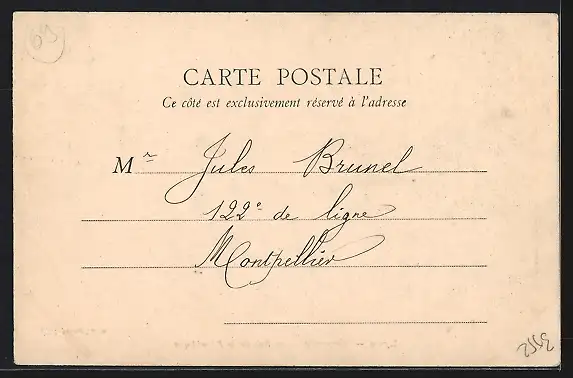 69
CARTE POSTALE
Ce côté est exclusivement réservé à l'adresse
Mr Jules Brunel
122e de ligne
Montpellier